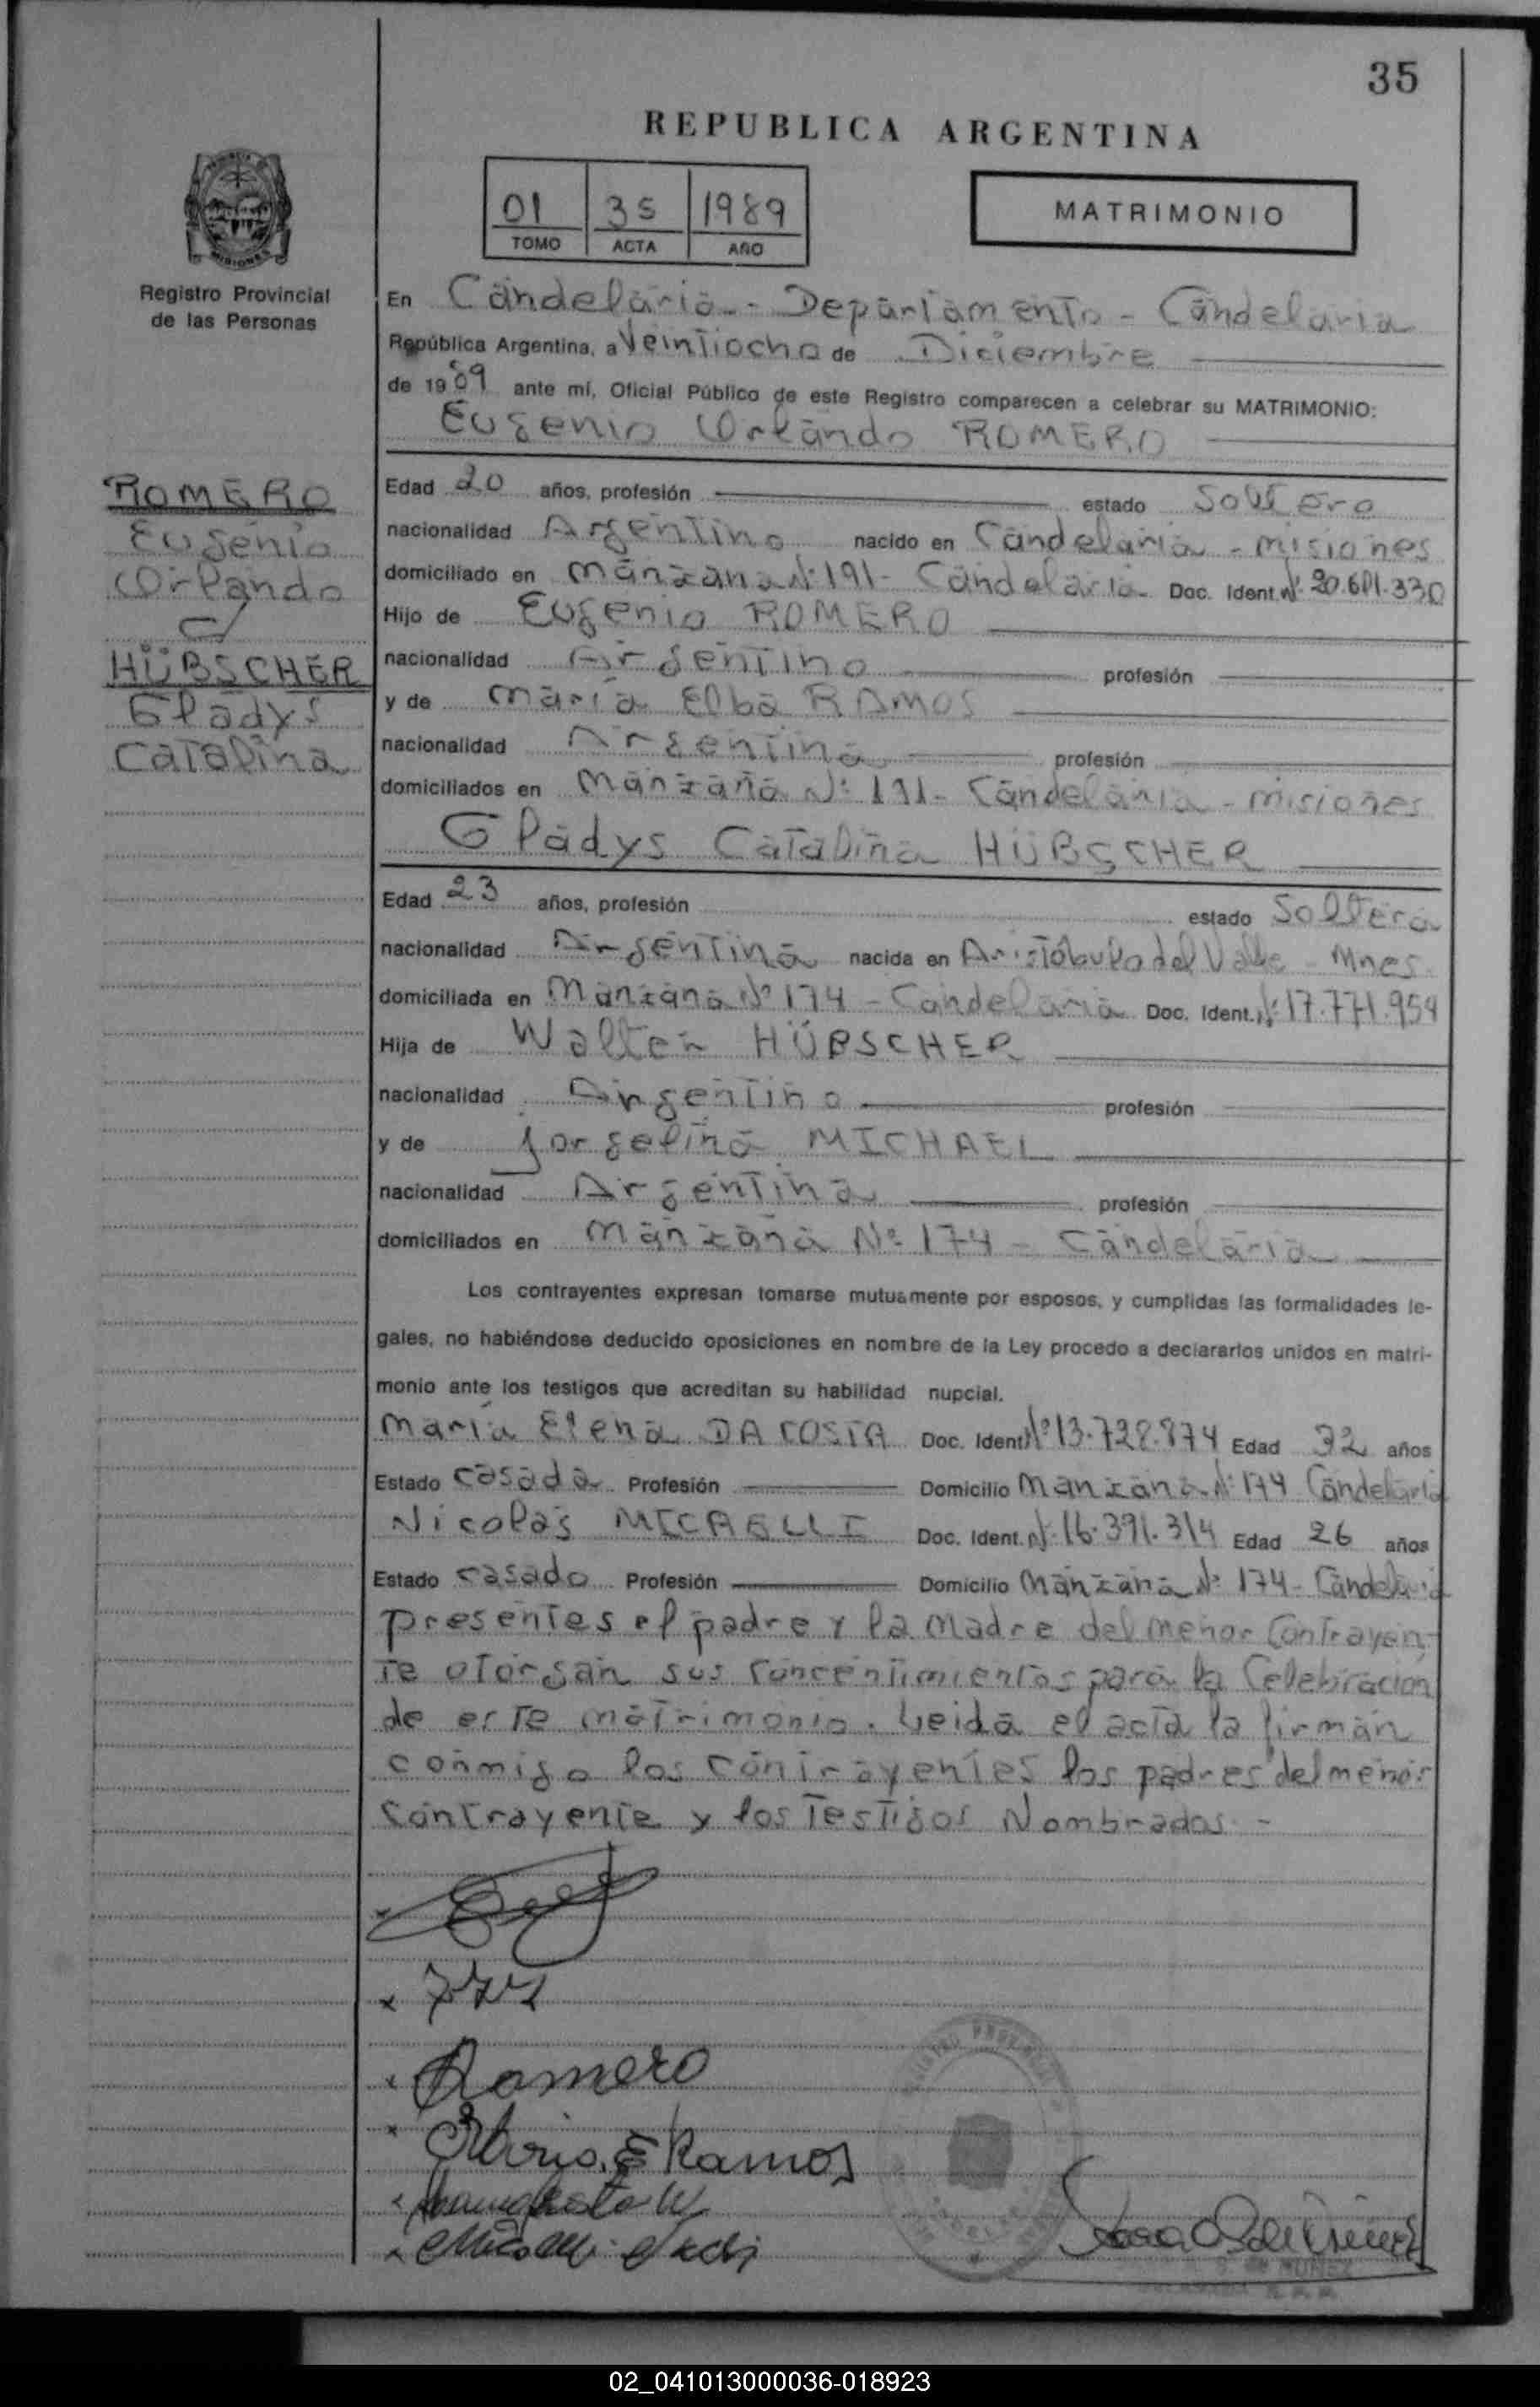 35
REPUBLICA ARGENTINA
01 35 1989
TOMO ACTA AÑO
MATRIMONIO
Registro Provincial
de las Personas
En Candelaria - Departamento - Candelaria
República Argentina, a Veintiocho de Diciembre
de 1989 ante mí, Oficial Público de este Registro comparecen a celebrar su MATRIMONIO:
Eugenio Orlando ROMERO
ROMERO
Eugenio
Orlando
c/
HÜBSCHER
Gladys
Catalina
Edad 20 años, profesión estado Soltero
nacionalidad Argentino nacido en Candelaria - Misiones
domiciliado en Manzana Nº 191 - Candelaria Doc. Ident. Nº
Hijo de Eugenio ROMERO
nacionalidad Argentino profesión
y de María Elba RAMOS
nacionalidad Argentina profesión
domiciliados en Manzana Nº 191 - Candelaria - Misiones
Gladys Catalina HÜBSCHER
Edad 23 años, profesión estado Soltera
nacionalidad Argentina nacida en Aristóbulo del Valle - Mnes.
domiciliada en Manzana Nº 174 - Candelaria Doc. Ident. Nº 17.771.954
Hija de Walter HÜBSCHER
nacionalidad Argentino profesión
y de Jorgelina MICHAEL
nacionalidad Argentina profesión
domiciliados en Manzana Nº 174 - Candelaria
Los contrayentes expresan tomarse mutuamente por esposos, y cumplidas las formalidades le-
gales, no habiéndose deducido oposiciones en nombre de la Ley procedo a declararlos unidos en matri-
monio ante los testigos que acreditan su habilidad nupcial.
María Elena DACOSTA Doc. Ident. Nº 13.728.874 Edad 32 años
Estado casada Profesión Domicilio Manzana Nº 174 Candelaria
Nicolás MICAELLI Doc. Ident. Nº 16.391.314 Edad 26 años
Estado casado Profesión Domicilio Manzana Nº 174 - Candelaria
presentes el padre y la Madre del menor Contrayen-
te otorgan sus concentimientos para la Celebración
de este matrimonio. Leida el acta la firman
conmigo los contrayentes los padres del menor
contrayente y los Testigos Nombrados. -
Romero
Maria. E Ramos
02_041013000036-018923